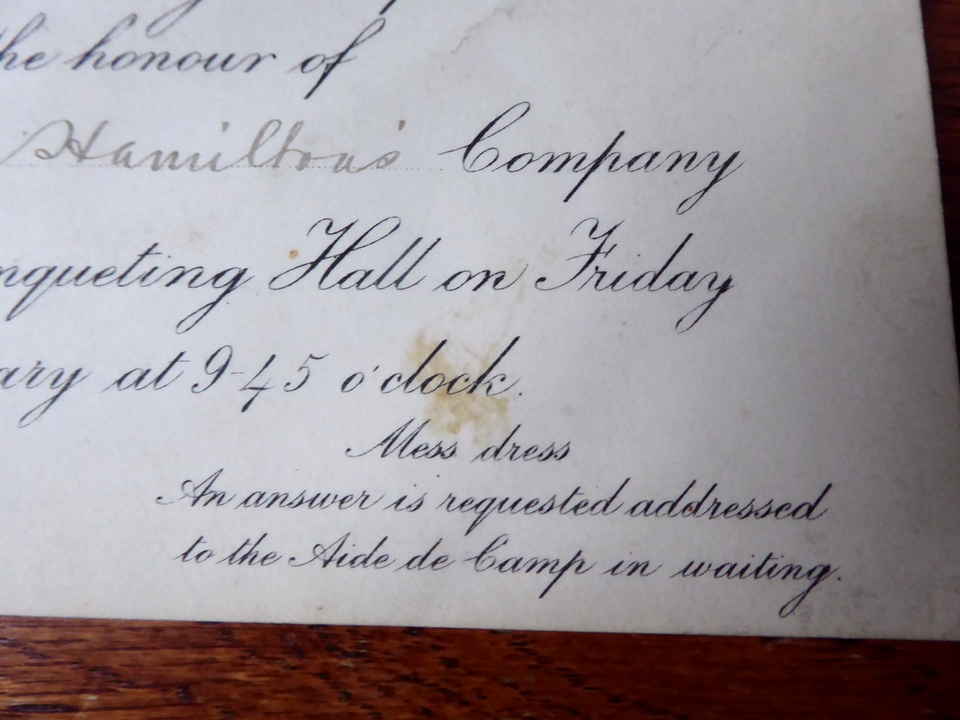 the honour of
Hamilton's Company
nqueting Hall on Friday
ary at 9-45 o'clock.
Mess dress
An answer is requested addressed
to the Aide de Camp in waiting.